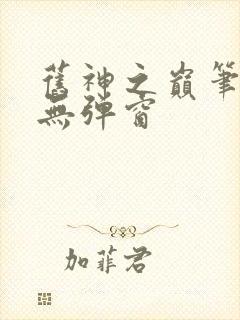 舊神之巔筆
無彈窗
加菲君